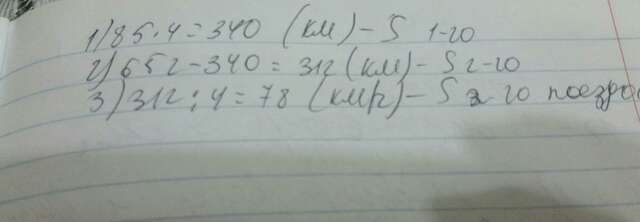 1) 85 · 4 = 340 (км) – S 1-го
2) 652 – 340 = 312 (км) – S 2-го
3) 312 : 4 = 78 (км/ч) – S 2 го поезда